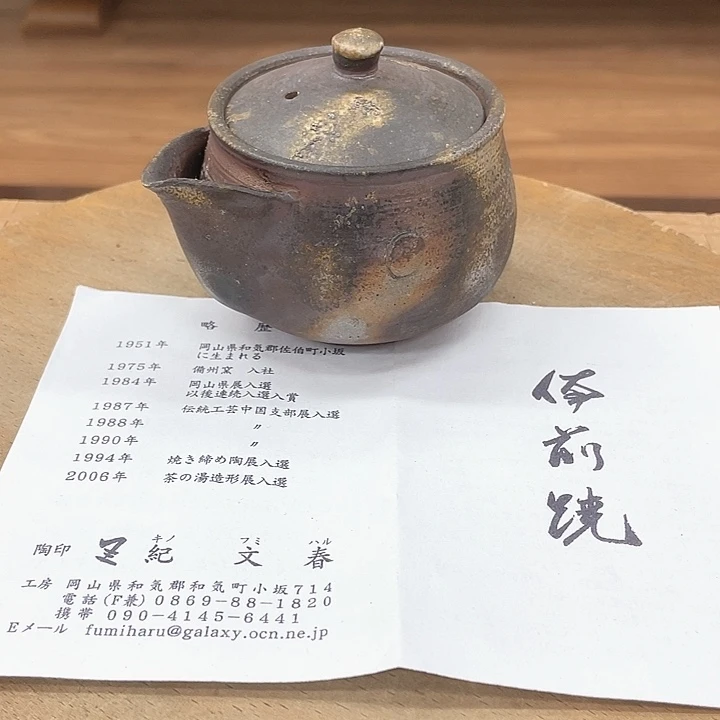 略 歴
1951年 岡山県和気郡佐伯町小坂
に生まれる
1975年 備州窯 入社
1984年 岡山県展入選
以後連続入選入賞
1987年 伝統工芸中国支部展入選
1988年 〃
1990年 〃
1994年 焼き締め陶展入選
2006年 茶の湯造形展入選
キノ フミ ハル
陶印 紀 文 春
工房 岡山県和気郡和気町小坂714
電話(F兼) 0869-88-1820
携帯 090-4145-6441
Eメール fumiharu@galaxy.ocn.ne.jp
備前焼